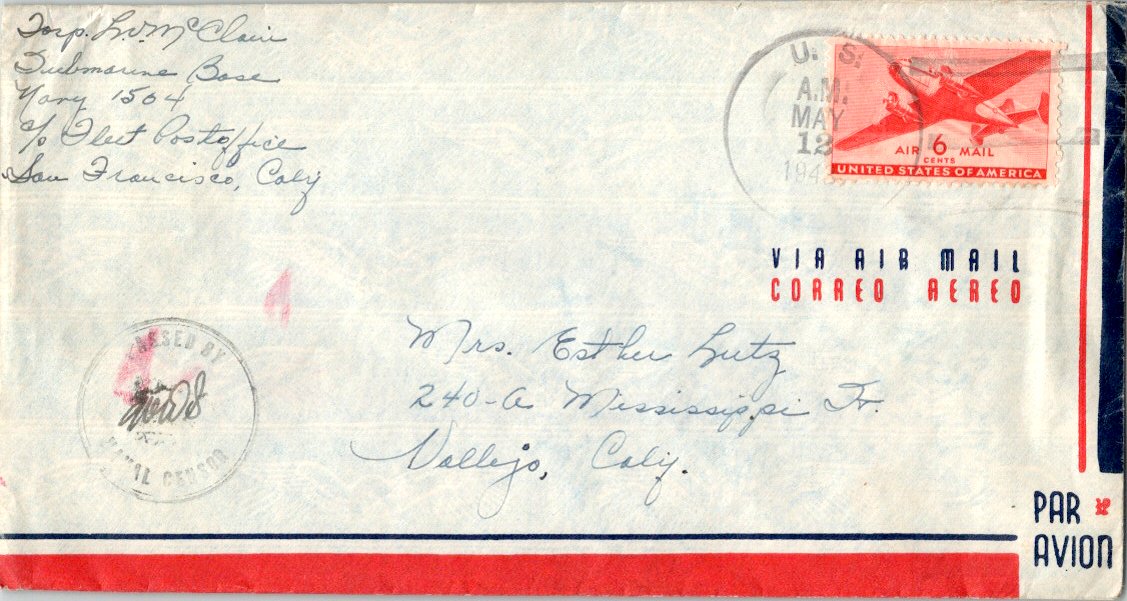 Torp. L.V. McClain
Submarine Base
Navy 1504
c/o Fleet Postoffice
San Francisco, Calif
U. S.
A.M.
MAY
12
AIR 6 MAIL
CENTS
UNITED STATES OF AMERICA
VIA AIR MAIL
CORREO AEREO
Mrs. Esther Lutz
240-A Mississippi Dr.
Vallejo, Calif.
PASSED BY
NAVAL CENSOR
PAR
AVION